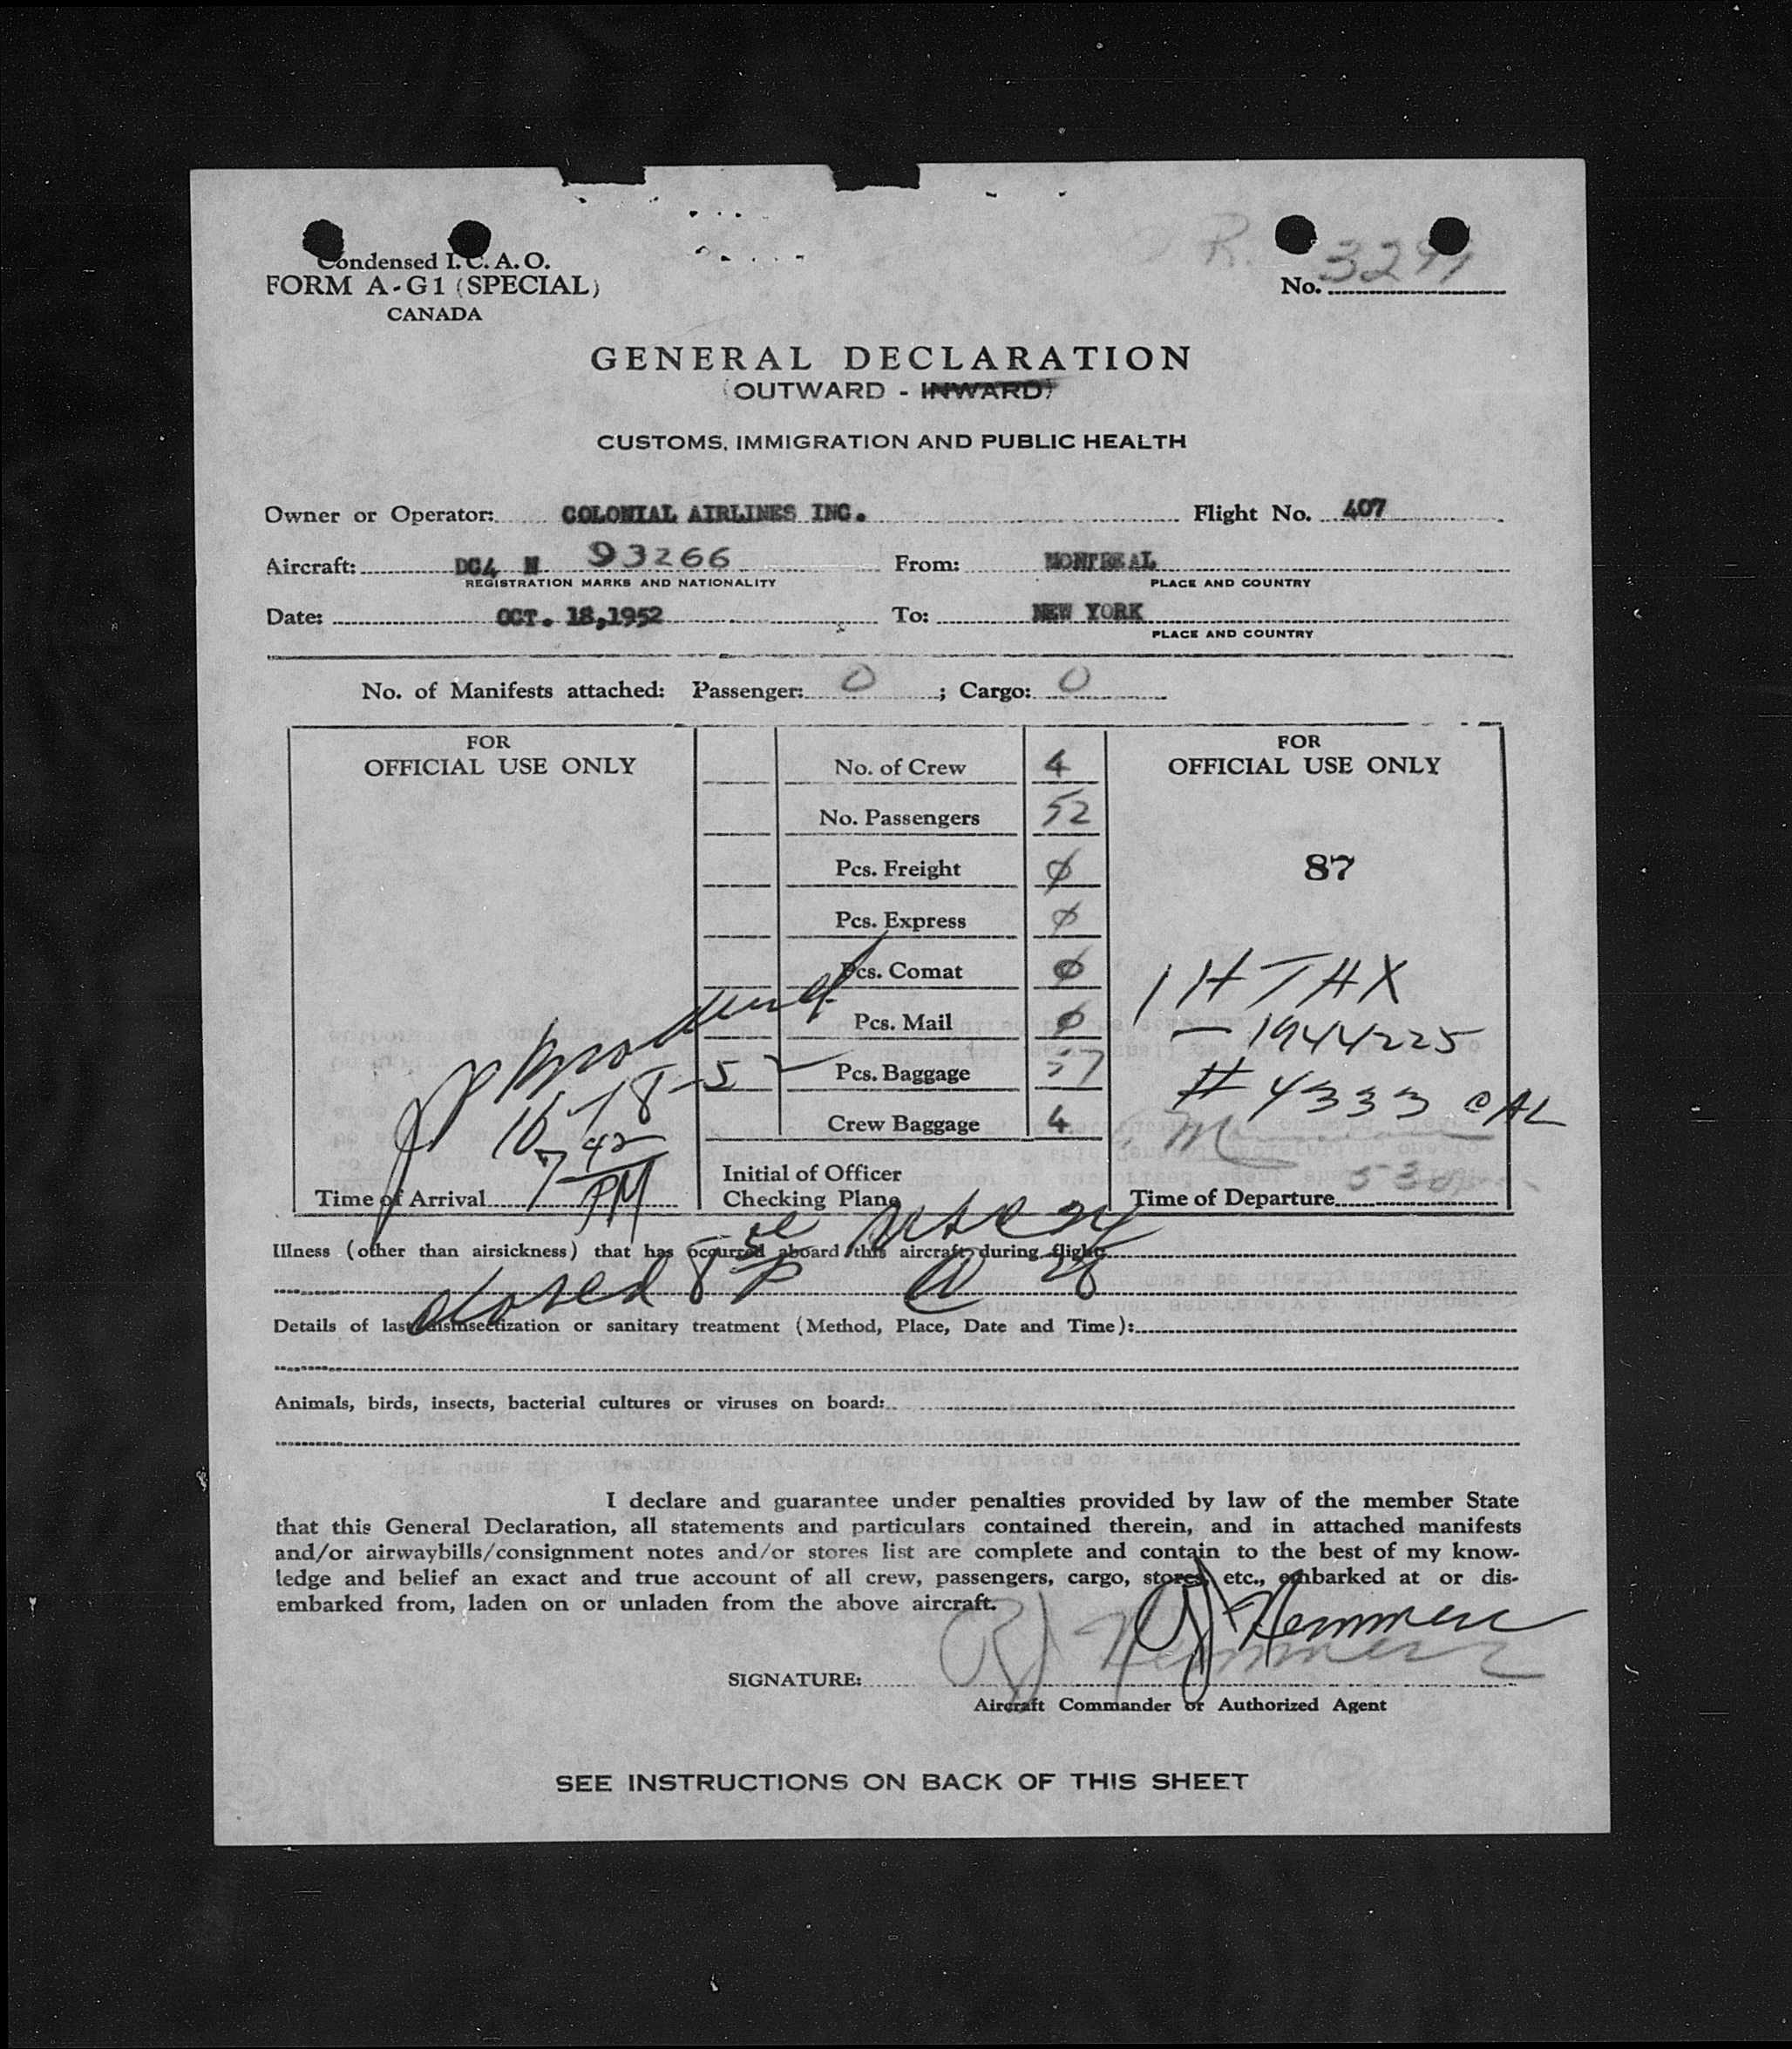 Condensed I.C.A.O.
FORM A-G1 (SPECIAL)
CANADA
R.
No. 3291
GENERAL DECLARATION
(OUTWARD - INWARD)
CUSTOMS, IMMIGRATION AND PUBLIC HEALTH
Owner or Operator: COLONIAL AIRLINES INC. Flight No. 407
Aircraft: DC4 N 93266 From: MONTREAL
REGISTRATION MARKS AND NATIONALITY PLACE AND COUNTRY
Date: OCT. 18,1952 To: NEW YORK
PLACE AND COUNTRY
No. of Manifests attached: Passenger: 0 ; Cargo: 0
FOR
OFFICIAL USE ONLY
No. of Crew 4
No. Passengers 52
Pcs. Freight 0
Pcs. Express 0
Pcs. Comat 0
Pcs. Mail 0
Pcs. Baggage 57
Crew Baggage 4
Initial of Officer
Checking Plane
10-18-52
7 42
PM
Time of Arrival
FOR
OFFICIAL USE ONLY
87
1 H TAX
- 1944225
# 4333 CAL
Time of Departure 530
Illness (other than airsickness) that has occurred aboard this aircraft during flight:
closed 8
Details of last disinsectization or sanitary treatment (Method, Place, Date and Time):
Animals, birds, insects, bacterial cultures or viruses on board:
I declare and guarantee under penalties provided by law of the member State
that this General Declaration, all statements and particulars contained therein, and in attached manifests
and/or airwaybills/consignment notes and/or stores list are complete and contain to the best of my know-
ledge and belief an exact and true account of all crew, passengers, cargo, stores, etc., embarked at or dis-
embarked from, laden on or unladen from the above aircraft.
SIGNATURE:
Aircraft Commander or Authorized Agent
SEE INSTRUCTIONS ON BACK OF THIS SHEET